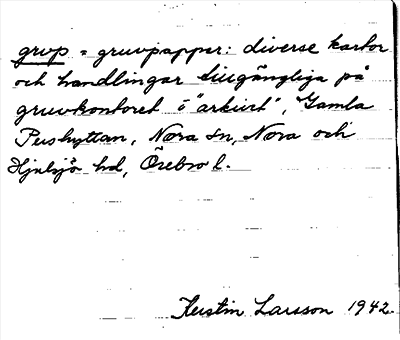 grvp = gruvpapper: diverse kartor
och handlingar tillgängliga på
gruvkontoret i "arkivet", Gamla
Pershyttan, Nora sn, Nora och
Hjulsjö hd, Örebro l.
Kerstin Larsson 1942.